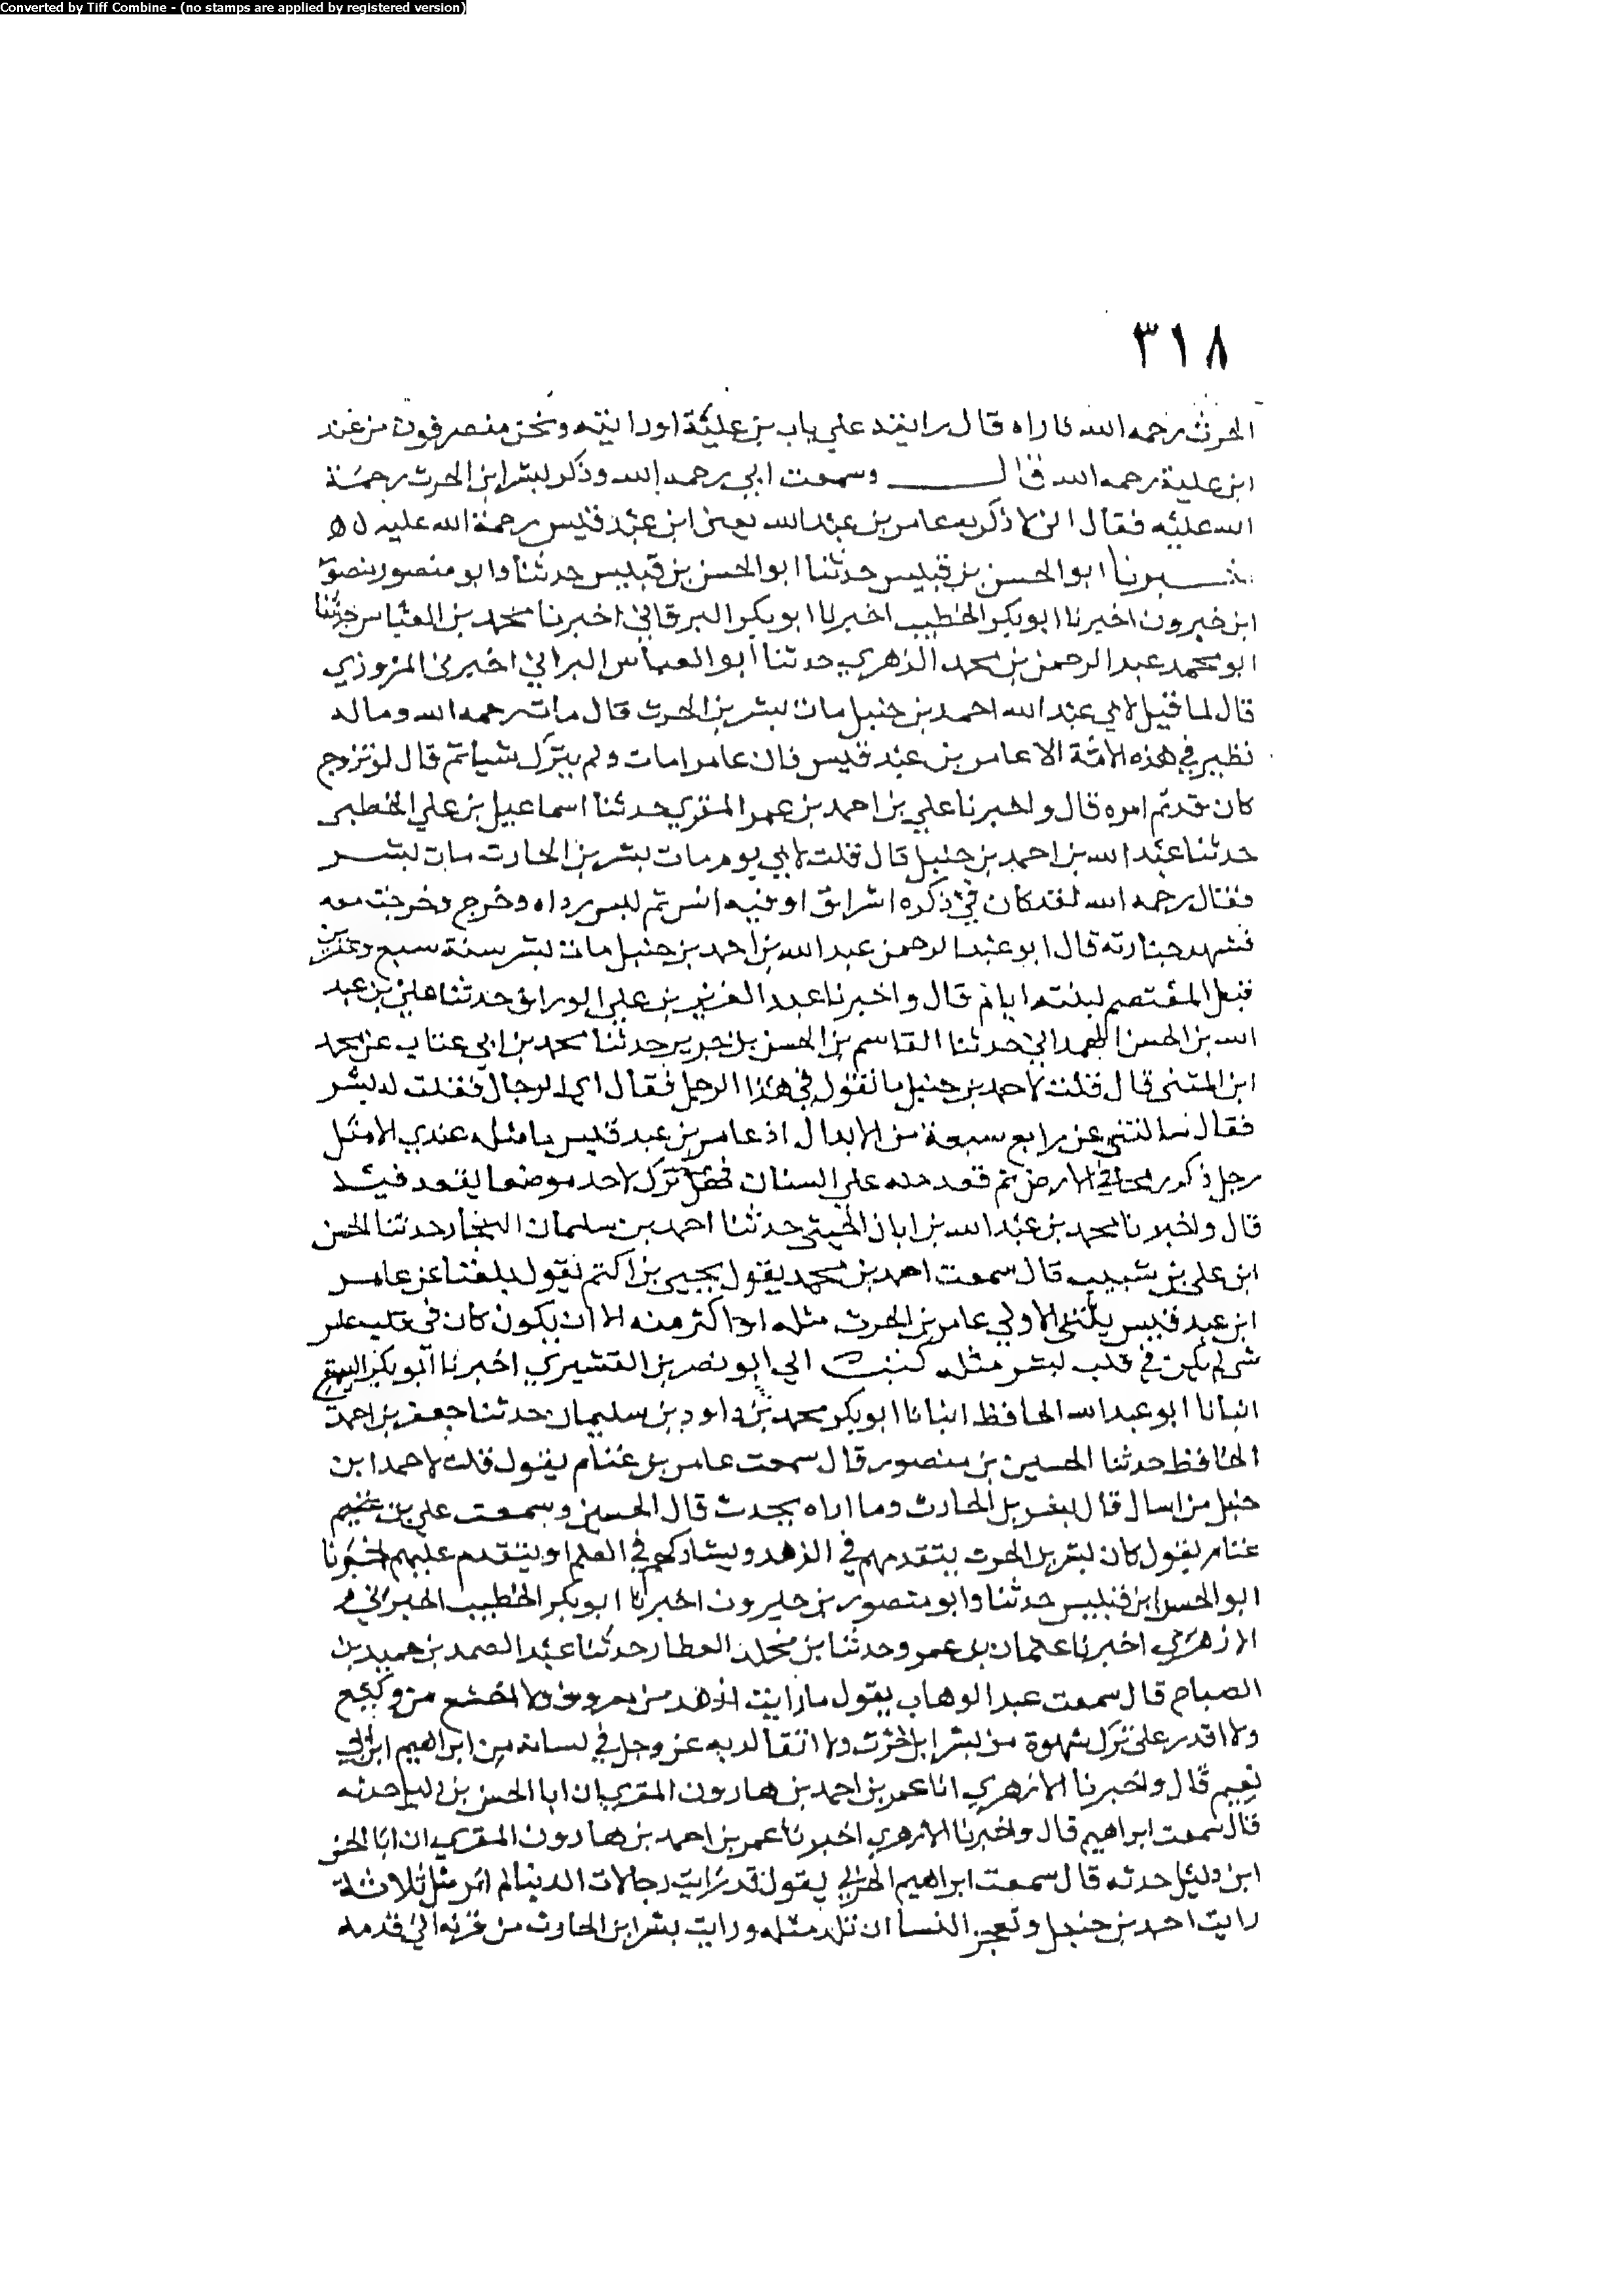 Converted by Tiff Combine - (no stamps are applied by registered version)
٣١٨
الحرث رحمه الله فاراه قال رايته علي باب بن علية او رايته ونحن منصرفون من عند
ابن علية رحمه الله قال وسمعت ابي رحمه الله وذكر لبشر ابن الحرث رحمة
الله عليه فقال اني لاذكر به عامر بن عبد الله يعني ابن عبد قيس رحمة الله عليه
ابو الحسن بن قبيس حدثنا ابو الحسن بن قبيس حدثنا وابو منصور
ابن خيرون اخبرنا ابو بكر الخطيب اخبرنا ابو بكر البرقاني اخبرنا محمد بن العباس حدثنا
ابو محمد عبد الرحمن بن محمد الزهري حدثنا ابو العباس البراني اخبرني المروزي
قال لما قيل لابي عبد الله احمد بن حنبل مات بشر بن الحرث قال مات رحمه الله وما له
نظير في هذه الامة الا عامر بن عبد قيس فان عامرا مات ولم يترك شيا ثم قال لو تزوج
كان قد تم امره قال واخبرنا علي بن احمد بن عمر المقري حدثنا اسماعيل بن علي الخطبي
حدثنا عبد الله بن احمد بن حنبل قال قلت لابي يوم مات بشر بن الحارث مات بشر
فقال رحمه الله لقد كان في ذكره انس او فيه انس ثم لبس رداه وخرج وخرجت معه
فشهد جنازته قال ابو عبد الرحمن عبد الله بن احمد بن حنبل مات بشر سنة سبع وعشرين
قبل المعتصم بستة ايام قال واخبرنا عبد العزيز بن علي الوراق حدثنا علي بن عبد
الله بن الحسن الهمداني حدثنا القاسم بن الحسن بن جرير حدثنا محمد بن ابي عتاب عن محمد
ابن المثنى قال قلت لاحمد بن حنبل ما تقول في هذا الرجل فقال اي الرجال فقلت له بشر
فقال سالتني عن رابع سبعة من الابدال او عامر بن عبد قيس ما مثله عندي الا مثل
رجل ركز رمحا في الارض ثم قعد منه علي السنان فهل ترك لاحد موضعا يقعد فيه
قال واخبرنا محمد بن عبد الله بن ابان الهيتي حدثنا احمد بن سلمان النجار حدثنا الحسن
ابن علي بن شبيب قال سمعت احمد بن محمد يقول يحيي بن اكثم يقول بلغنا عن عامر
ابن عبد قيس الاولي عامر بن الحرث مثله او اكثر منه الا ان يكون كان في قلب عامر
شي لم يكن في قلب بشر مثله كتبت الي ابو نصر بن القشيري اخبرنا ابو بكر البيهقي
انبانا ابو عبد الله الحافظ انبانا ابو بكر محمد بن داود بن سليمان حدثنا جعفر بن احمد
الحافظ حدثنا الحسين بن منصور قال سمعت عامر بن غنام يقول قلت لاحمد ابن
حنبل من اسال قال لبشر بن الحارث وما اراه يحدث قال الحسين وسمعت علي بن
غنام يقول كان بشر بن الحرث يتقدمهم في الزهد ويشاركهم في العلم او يتقدم عليهم اخبرنا
ابو الحسن ابن قبيس حدثنا وابو منصور بن خيرون اخبرنا ابو بكر الخطيب اخبرني
الازهري اخبرنا عثمان بن عمر وحدثنا بن مخلد العطار حدثنا عبد الصمد بن حميد بن
الصباح قال سمعت عبد الوهاب يقول ما رايت ازهد من معروف ولا اخشع من وكيع
ولا اقدر على ترك شهوة من بشر ابن الحرث ولا اتقا لربه عز وجل في لسانه من ابراهيم ابن ابي
نعيم قال واخبرنا الازهري انا عمر بن احمد بن هارون المقري ان ابا الحسن بن دليل حدثه
قال سمعت ابراهيم قال واخبرنا الازهري اخبرنا عمر بن احمد بن هارون المقري ان ابا الحسن
ابن دليل حدثه قال سمعت ابراهيم الحربي يقول قد رايت رجالات الدنيا لم ار مثل ثلاثة
رايت احمد بن حنبل وتعجز النسا ان تلد مثله ورايت بشر ابن الحارث من قرنه الي قدمه